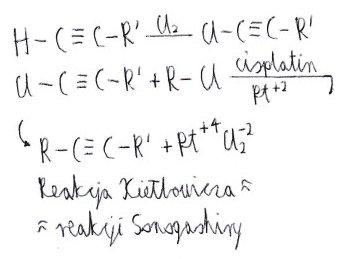 H-C≡C-R' Cl₂ Cl-C≡C-R'
Cl-C≡C-R' + R-Cl cisplatin Pt⁺²
R-C≡C-R' + Pt⁺⁴Cl₂⁻²
Reakcja Kietlowicza ≈
≈ reakcji Sonogashiry